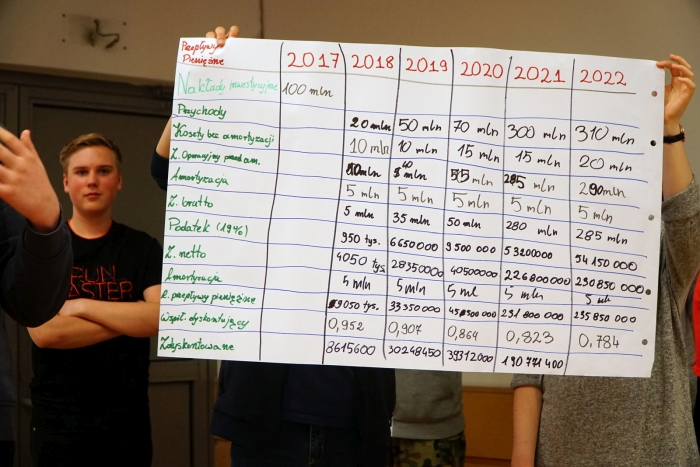 Przepływy
Pieniężne
2017 2018 2019 2020 2021 2022
Nakłady inwestycyjne 100 mln
Przychody 20 mln 50 mln 70 mln 300 mln 310 mln
Koszty bez amortyzacji 10 mln 10 mln 15 mln 15 mln 20 mln
Z. Operacyjny przed am. 10mln 40 55 mln 285 mln 290mln
Amortyzacja 5 mln 5 mln 5 mln 5 mln 5 mln
Z. brutto 5 mln 35 mln 50 mln 280 mln 285 mln
Podatek (19%) 950 tys. 6650000 9500 000 53200000 54 150 000
Z. netto 4050 tys. 28350000 40500000 226800000 230 850 000
Amortyzacja 5 mln 5 mln 5 ml 5 mln 5 mln
przepływy pieniężne 9050 tys. 33 350 000 45 500 000 231 800 000 235 850 000
Współ. dyskontujący 0,952 0,907 0,864 0,823 0,784
Zdyskontowane 8615600 30248450 39312000 190 771 400
RUN
FASTER